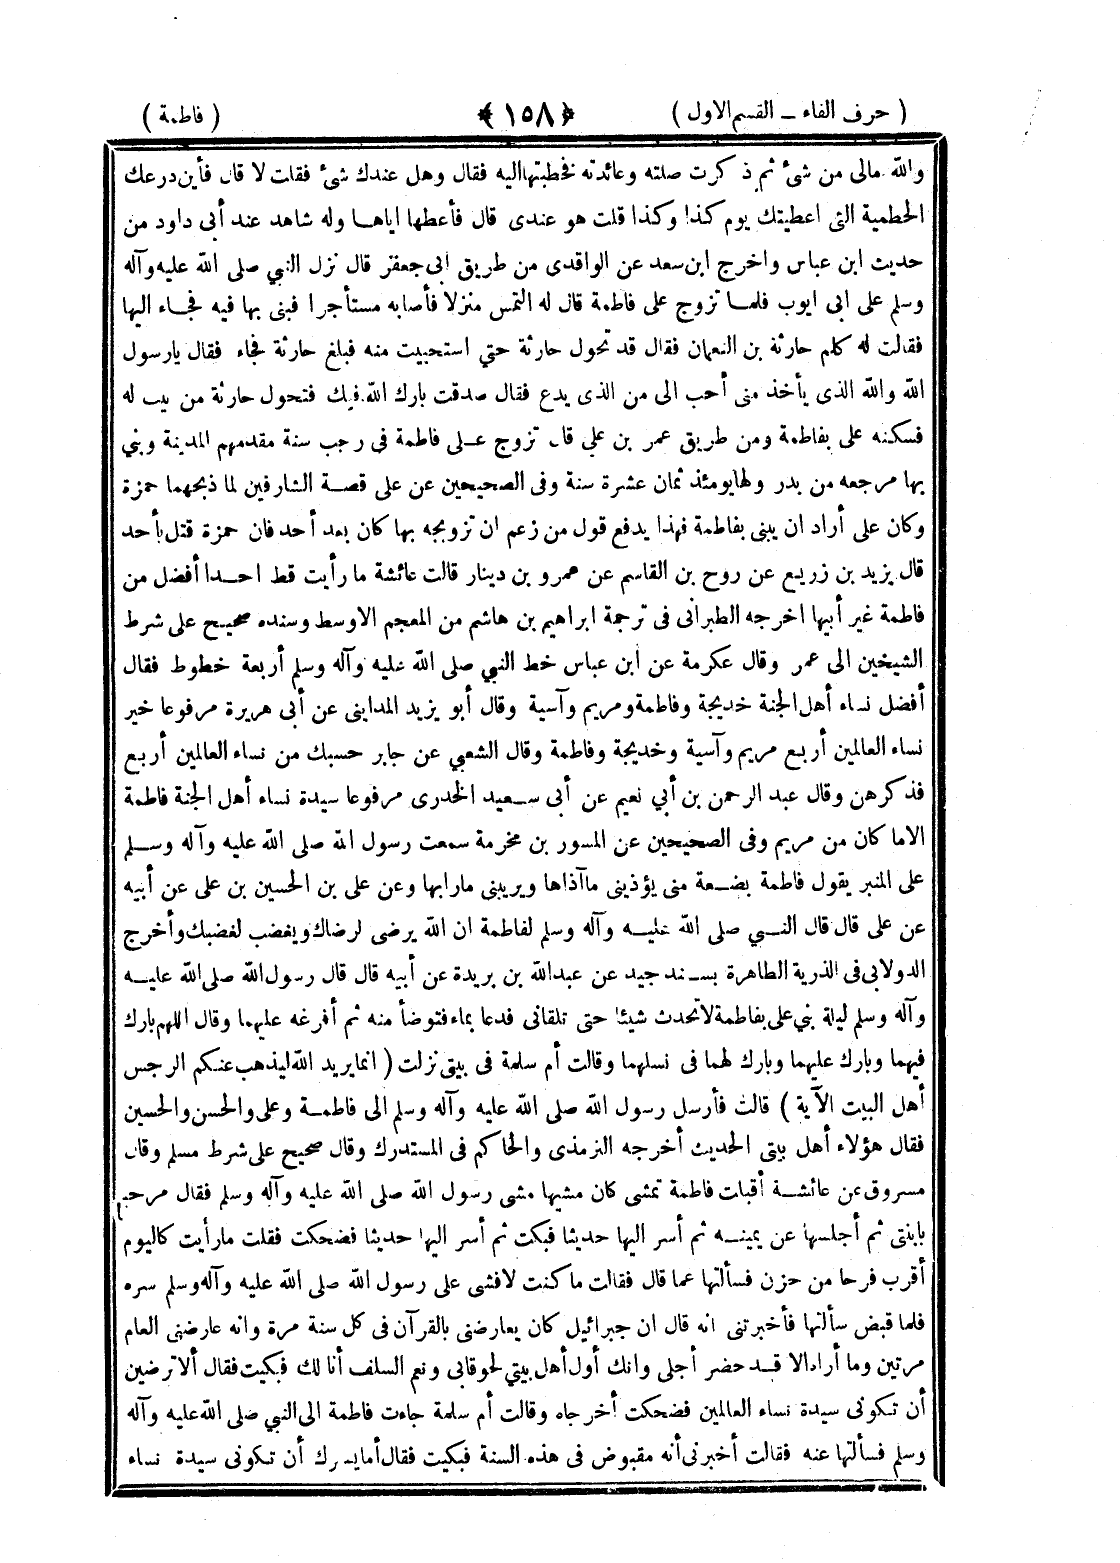 ( حرف الفاء ـ القسم الاول ) ﴿ ١٥٨ ﴾ ( فاطمة )
والله مالى من شئ ثم ذكرت صلته وعائدته فخطبتها اليه فقال وهل عندك شئ فقلت لا قال فأين درعك
الحطمية التى اعطيتك يوم كذا وكذا قلت هو عندى قال فأعطها اياهـا وله شاهد عند أبى داود من
حديث ابن عباس واخرج ابن سعد عن الواقدى من طريق ابى جعفر قال نزل النبي صلى الله عليه وآله
وسلم على ابى ايوب فلمـا تزوج على فاطمة قال له التمس منزلا فأصابه مستأجرا فبنى بها فيه فجـاء اليها
فقالت له كلم حارثة بن النعمان فقال قد تحول حارثة حتى استحييت منه فبلغ حارثة فجاء فقال يارسول
الله والله الذى يأخذ منى أحب الى من الذى يدع فقال صدقت بارك الله فيك فتحول حارثة من بيت له
فسكنه على بفاطمة ومن طريق عمر بن على قال تزوج عـلى فاطمة فى رجب سنة مقدمهم المدينة وبني
بها مرجعه من بدر ولها يومئذ ثمان عشرة سنة وفى الصحيحين عن على قصـة الشارفين لما ذبحهما حمزة
وكان على أراد ان يبنى بفاطمة فهذا يدفع قول من زعم ان تزويجه بها كان بعد أحد فان حمزة قتل بأحد
قال يزيد بن زريع عن روح بن القاسم عن عمرو بن دينار قالت عائشة ما رأيت قط احـدا أفضل من
فاطمة غير أبيها اخرجه الطبرانى فى ترجمة ابراهيم بن هاشم من المعجم الاوسط وسنده صحيـح على شرط
الشيخين الى عمر وقال عكرمة عن ابن عباس خط النبي صلى الله عليه وآله وسلم أربعة خطوط فقال
أفضل نساء أهل الجنة خديجة وفاطمة ومريم وآسية وقال أبو يزيد المدايني عن أبى هريرة مرفوعا خير
نساء العالمين أربع مريم وآسية وخديجة وفاطمة وقال الشعبي عن جابر حسبك من نساء العالمين أربع
فذكرهن وقال عبد الرحمن بن أبي نعيم عن أبى سـعيد الخدرى مرفوعا سيدة نساء أهل الجنة فاطمة
الاما كان من مريم وفى الصحيحين عن المسور بن مخرمة سمعت رسول الله صلى الله عليه وآله وسـلم
على المنبر يقول فاطمة بضـعة منى يؤذينى ماآذاها ويريبنى مارابها وعن على بن الحسين بن على عن أبيه
عن على قال قال النـبي صلى الله عليـه وآله وسلم لفاطمة ان الله يرضى لرضاك ويغضب لغضبك وأخرج
الدولابى فى الذرية الطاهرة بسـند جيد عن عبدالله بن بريدة عن أبيه قال قال رسول الله صلى الله عليـه
وآله وسلم ليلة بني على بفاطمة لاتحدث شيئا حتى تلقانى فدعا بماء فتوضأ منه ثم أفرغه عليهما وقال اللهم بارك
فيهما وبارك عليهما وبارك لهما فى نسلهما وقالت أم سلمة فى بيتى نزلت ( انما يريد الله ليذهب عنكم الرجس
أهل البيت الآية ) قالت فأرسل رسول الله صلى الله عليه وآله وسلم الى فاطمـة وعلى والحسن والحسين
فقال هؤلاء أهل بيتى الحديث أخرجه الترمذى والحاكم فى المستدرك وقال صحيح على شرط مسلم وقال
مسروق عن عائشـة أقبلت فاطمة تمشى كان مشيها مشى رسول الله صلى الله عليه وآله وسلم فقال مرحبا
بابنتى ثم أجلسها عن يمينـه ثم أسر اليها حديثا فبكت ثم أسر اليها حديثا فضحكت فقلت مارأيت كاليوم
أقرب فرحا من حزن فسألتها عما قال فقالت ما كنت لافشى على رسول الله صلى الله عليه وآله وسلم سره
فلما قبض سألتها فأخبرتنى انه قال ان جبرائيل كان يعارضنى بالقرآن فى كل سنة مرة وانه عارضنى العام
مرتين وما أراه الا قـد حضر أجلى وانك أول أهل بيتي لحوقا بى ونعم السلف أنا لك فبكيت فقال ألا ترضين
أن تكونى سيدة نساء العالمين فضحكت أخرجاه وقالت أم سلمة جاءت فاطمة الى النبي صلى الله عليه وآله
وسلم فسألتها عنه فقالت أخبرنى أنه مقبوض فى هذه السنة فبكيت فقال أما يسرك أن تكونى سيدة نساء